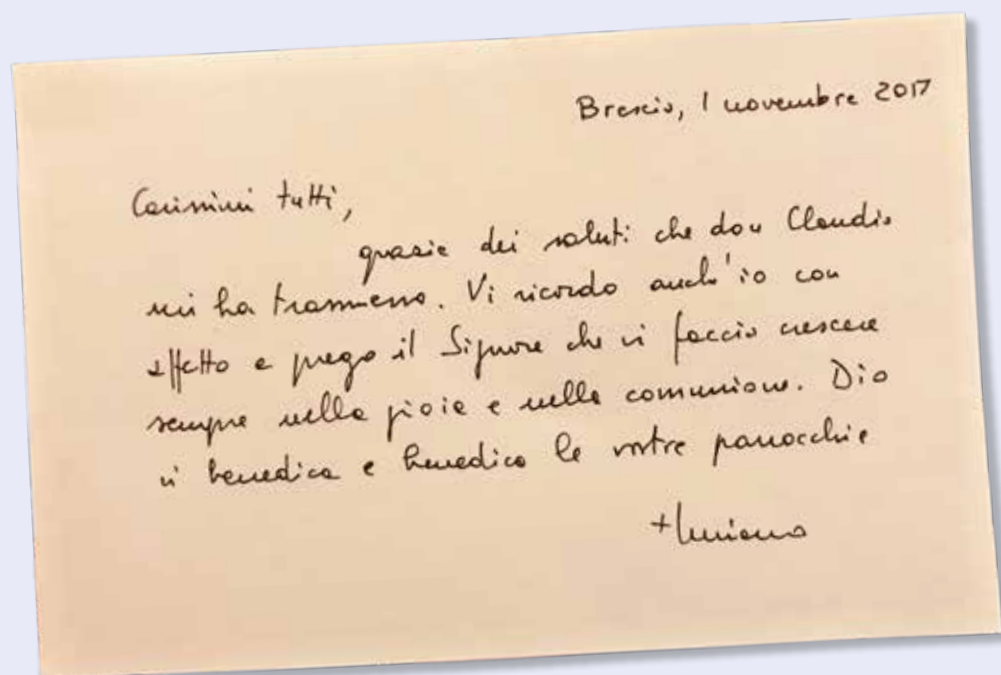 Brescia, 1 novembre 2017
Carissimi tutti,
grazie dei saluti che don Claudio
mi ha trasmesso. Vi ricordo anch'io con
affetto e prego il Signore che vi faccia crescere
sempre nella gioia e nella comunione. Dio
vi benedica e benedica le vostre parrocchie
+Luciano